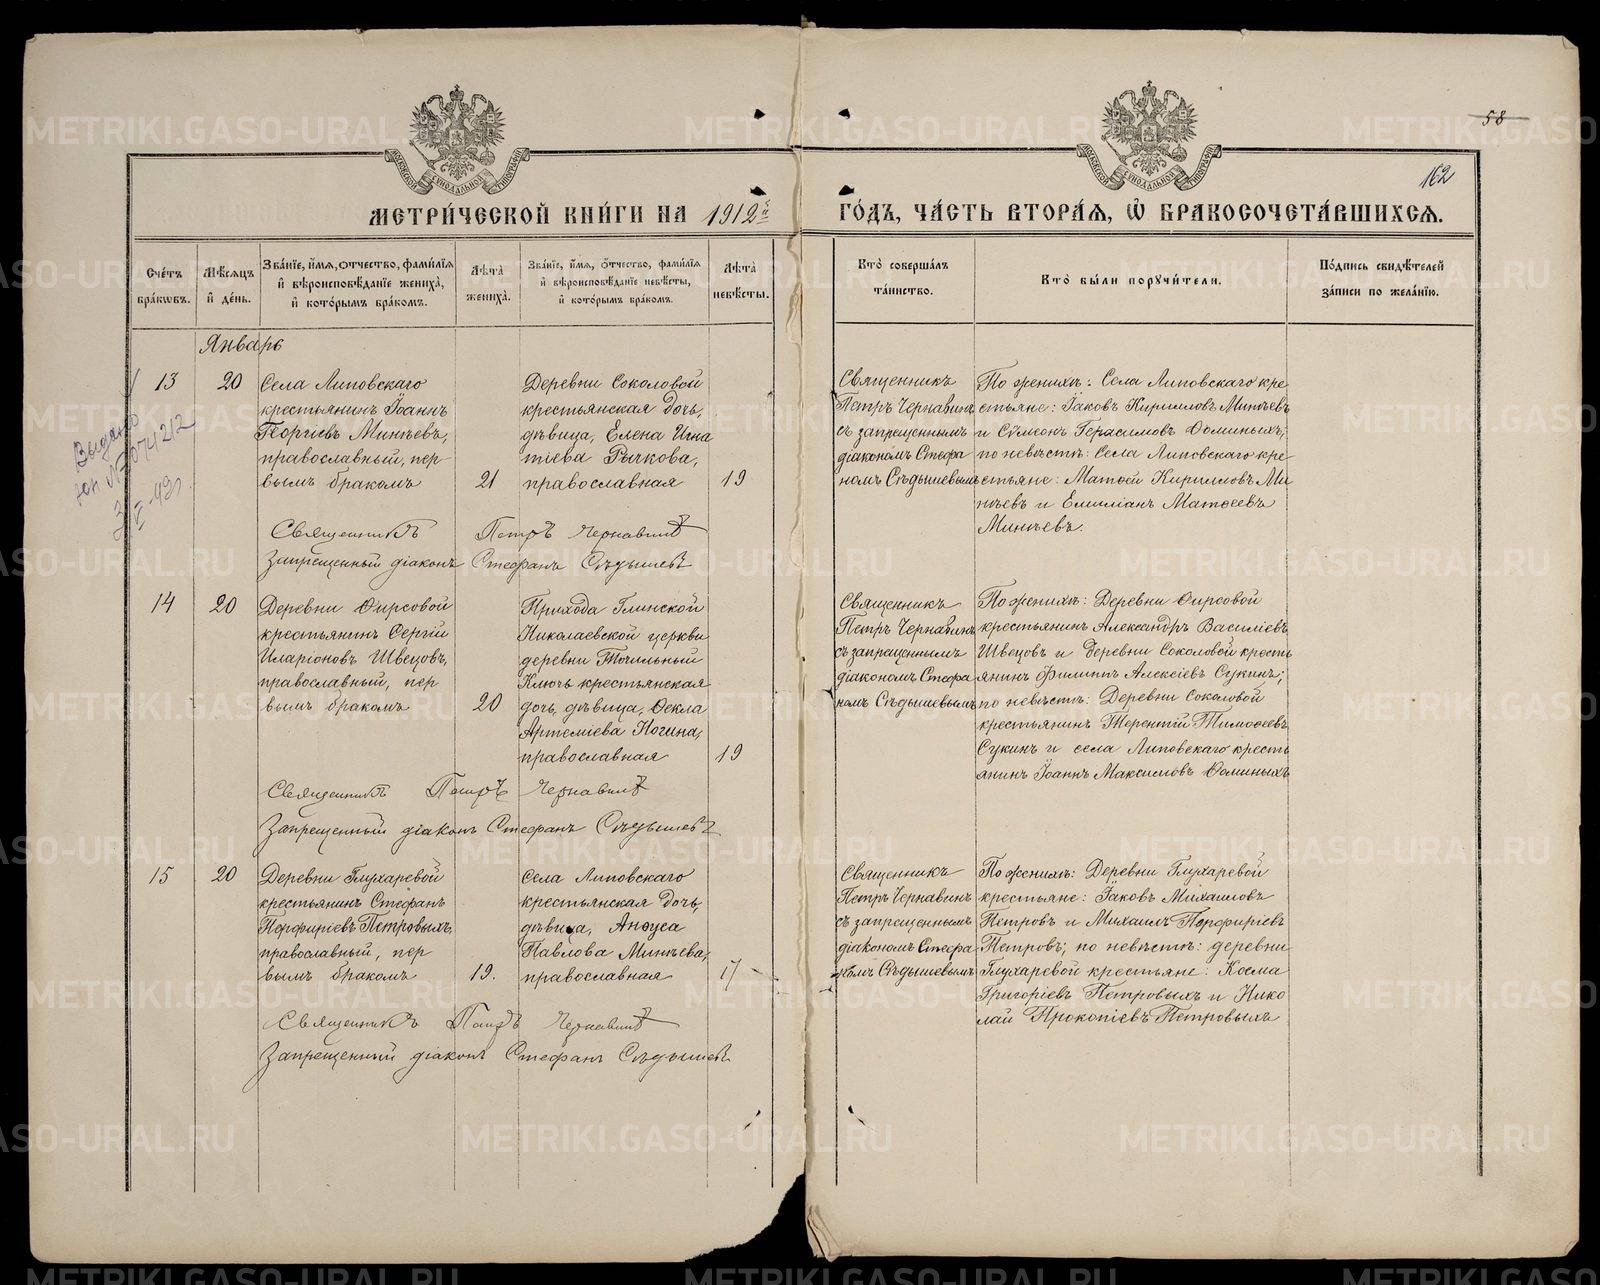 58
162
МОСКОВСКОЙ СѴНОДАЛЬНОЙ ТИПОГРАФІИ
МОСКОВСКОЙ СѴНОДАЛЬНОЙ ТИПОГРАФІИ
МЕТРИ́ЧЕСКОЙ КНИ́ГИ НА 1912й ГО́ДЪ, ЧА́СТЬ ВТОРА́Я, Ѽ БРАКОСОЧЕТА́ВШИХСЯ.
Сче́тъ бра́кѡвъ.
Мѣ́сяцъ и҆ де́нь.
Зва́нїе, и҆́мя, о҆́тчество, фами́лїя и҆ вѣроисповѣ́данїе жениха̀, и҆ кото́рымъ бра́комъ.
Лѣ́та жениха̀.
Зва́нїе, и҆́мя, о҆́тчество, фами́лїя и҆ вѣроисповѣ́данїе невѣ́сты, и҆ кото́рымъ бра́комъ.
Лѣ́та невѣ́сты.
Кто̀ соверша́лъ та́инство.
Кто̀ бы́ли порꙋчи́тели.
По́дпись свидѣ́телей за́писи по жела́нїю.
Январь
13
20
Села Липовскаго
крестьянинъ Іоаннъ
Георгіевъ Минѣевъ,
православный, пер
вымъ бракомъ
21
Деревни Соколовой
крестьянская дочь,
дѣвица, Елена Игна
тіева Рычкова,
православная
19
Священникъ
Петръ Чернавинъ
съ запрещеннымъ
діакономъ Стефа
номъ Сѣдышевымъ
По женихѣ: Села Липовскаго кре
стьяне: Іаковъ Кирилловъ Минѣевъ
и Сѵмеонъ Герасимовъ Ѳоминыхъ;
по невѣстѣ: Села Липовскаго кре
стьяне: Матѳей Кирилловъ Ми
нѣевъ и Емиліанъ Матѳеевъ
Минѣевъ.
Священникъ Петръ Чернавинъ
Запрещенный діаконъ Стефанъ Сѣдышевъ
Выдано
14
20
Деревни Ѳирсовой
крестьянинъ Сергій
Иларіоновъ Швецовъ,
православный, пер
вымъ бракомъ
20
Прихода Глинской
Николаевской церкви
деревни Точильный
Ключъ крестьянская
дочь, дѣвица, Ѳекла
Артеміева Ногина,
православная
19
Священникъ
Петръ Чернавинъ
съ запрещеннымъ
діакономъ Стефа
номъ Сѣдышевымъ
По женихѣ: Деревни Ѳирсовой
крестьянинъ Александръ Василіевъ
Швецовъ и деревни Соколовой кресть
янинъ Филиппъ Алексіевъ Сукинъ;
по невѣстѣ: Деревни Соколовой
крестьянинъ Терентій Тимоѳеевъ
Сукинъ и села Липовскаго кресть
янинъ Іоаннъ Максимовъ Ѳоминыхъ
Священникъ Петръ Чернавинъ
Запрещенный діаконъ Стефанъ Сѣдышевъ
15
20
Деревни Глухаревой
крестьянинъ Стефанъ
Порфиріевъ Петровыхъ,
православный, пер
вымъ бракомъ
19.
Села Липовскаго
крестьянская дочь,
дѣвица, Анѳуса
Павлова Минѣева,
православная
17
Священникъ
Петръ Чернавинъ
съ запрещеннымъ
діакономъ Стефа
номъ Сѣдышевымъ
По женихѣ: Деревни Глухаревой
крестьяне: Іаковъ Михаиловъ
Петровъ и Михаилъ Порфиріевъ
Петровъ; по невѣстѣ: деревни
Глухаревой крестьяне: Косма
Григоріевъ Петровыхъ и Нико
лай Прокопіевъ Петровыхъ
Священникъ Петръ Чернавинъ
Запрещенный діаконъ Стефанъ Сѣдышевъ
METRIKI.GASO-URAL.RU